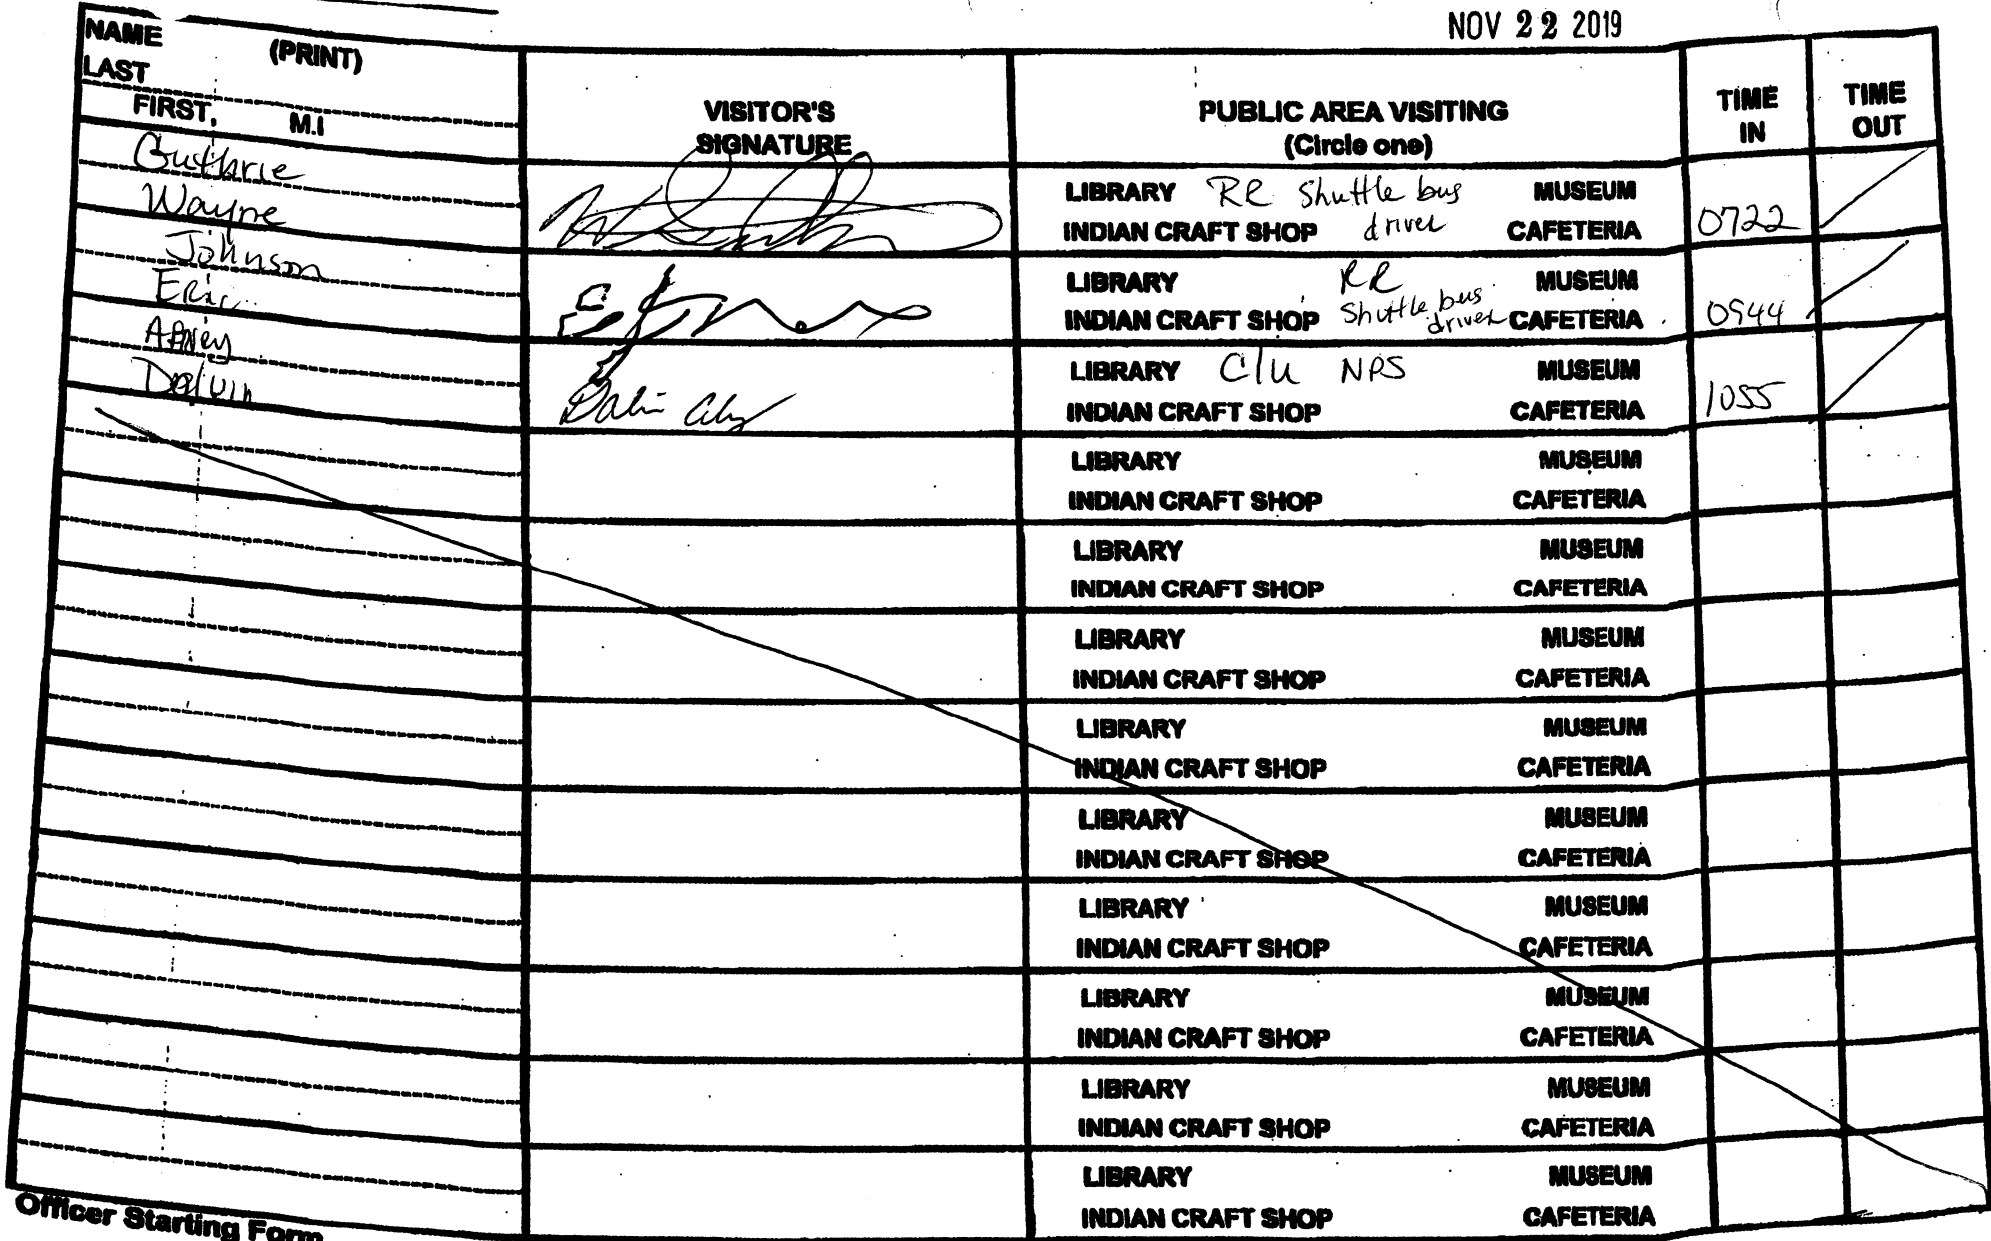 NOV 22 2019
NAME (PRINT)
LAST
FIRST, M.I
VISITOR'S
SIGNATURE
PUBLIC AREA VISITING
(Circle one)
TIME
IN
TIME
OUT
Guthrie
Wayne
LIBRARY RR Shuttle bus MUSEUM
INDIAN CRAFT SHOP driver CAFETERIA
0722
Johnson
Eric
LIBRARY RR MUSEUM
INDIAN CRAFT SHOP Shuttle bus driver CAFETERIA
0944
Dalvin
LIBRARY C/U NPS MUSEUM
INDIAN CRAFT SHOP CAFETERIA
1055
LIBRARY MUSEUM
INDIAN CRAFT SHOP CAFETERIA
LIBRARY MUSEUM
INDIAN CRAFT SHOP CAFETERIA
LIBRARY MUSEUM
INDIAN CRAFT SHOP CAFETERIA
LIBRARY MUSEUM
INDIAN CRAFT SHOP CAFETERIA
LIBRARY MUSEUM
INDIAN CRAFT SHOP CAFETERIA
LIBRARY MUSEUM
INDIAN CRAFT SHOP CAFETERIA
LIBRARY MUSEUM
INDIAN CRAFT SHOP CAFETERIA
LIBRARY MUSEUM
INDIAN CRAFT SHOP CAFETERIA
LIBRARY MUSEUM
INDIAN CRAFT SHOP CAFETERIA
Officer Starting Form